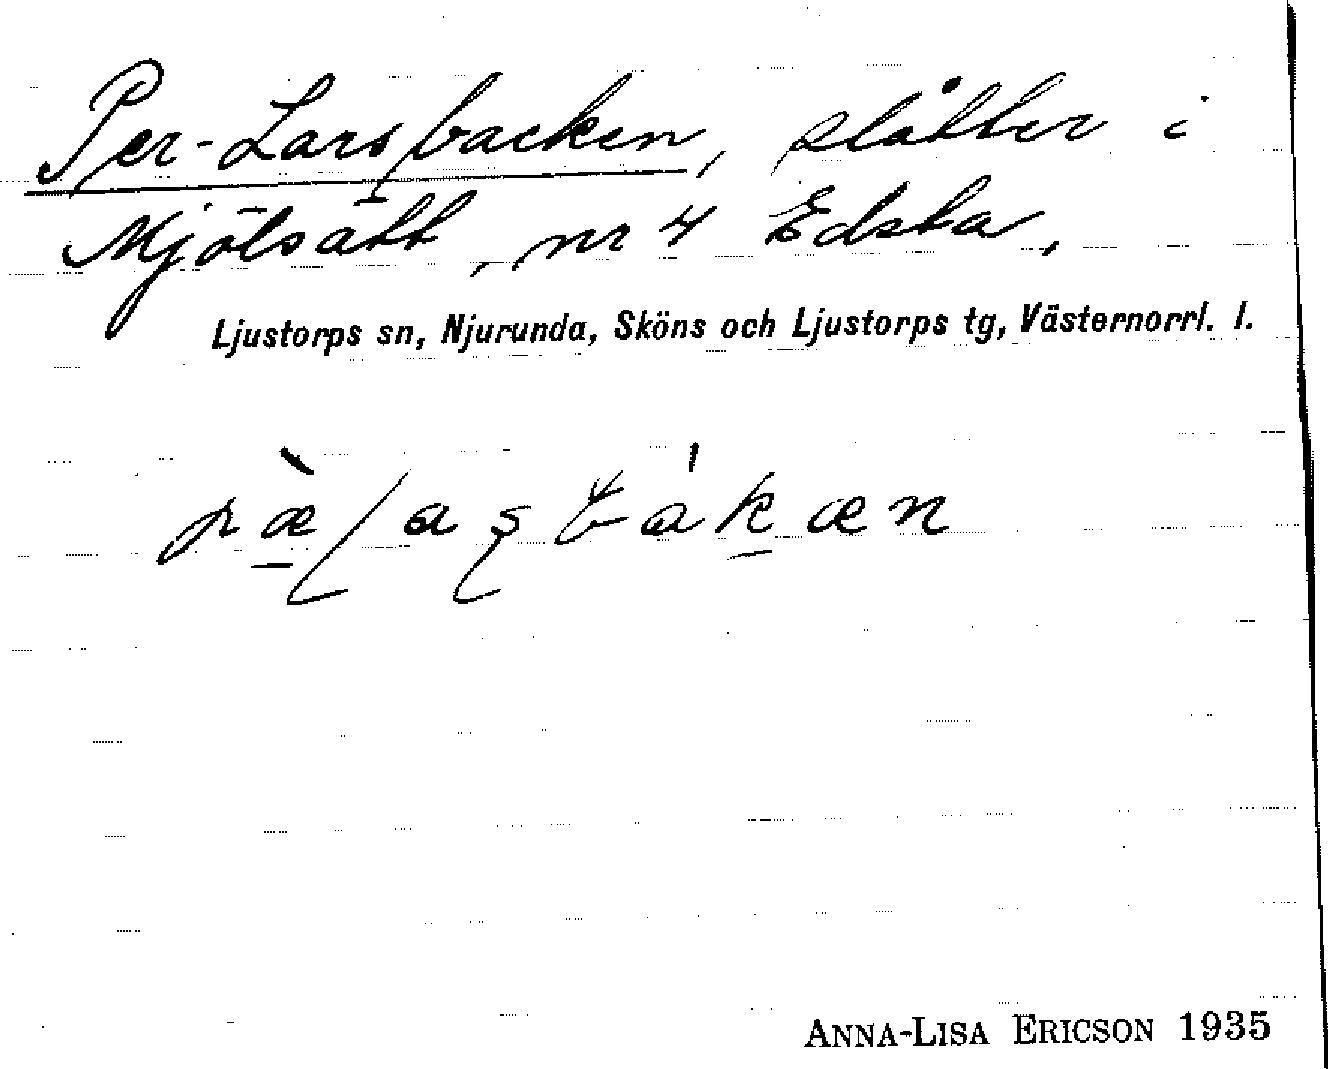 Per-Larsbacken, slåtter i
Mjölsätt, nr 4 Edsta.
Ljustorps sn, Njurunda, Sköns och Ljustorps tg, Västernorrl. l.
ANNA-LISA ERICSON 1935